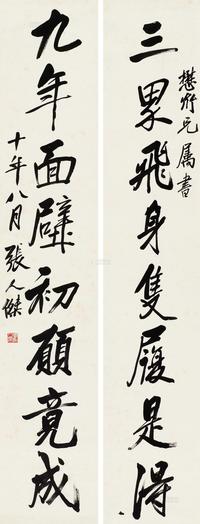 三界飛身隻履是得
懋衍兄屬書
九年面壁初願竟成
十年八月張人傑